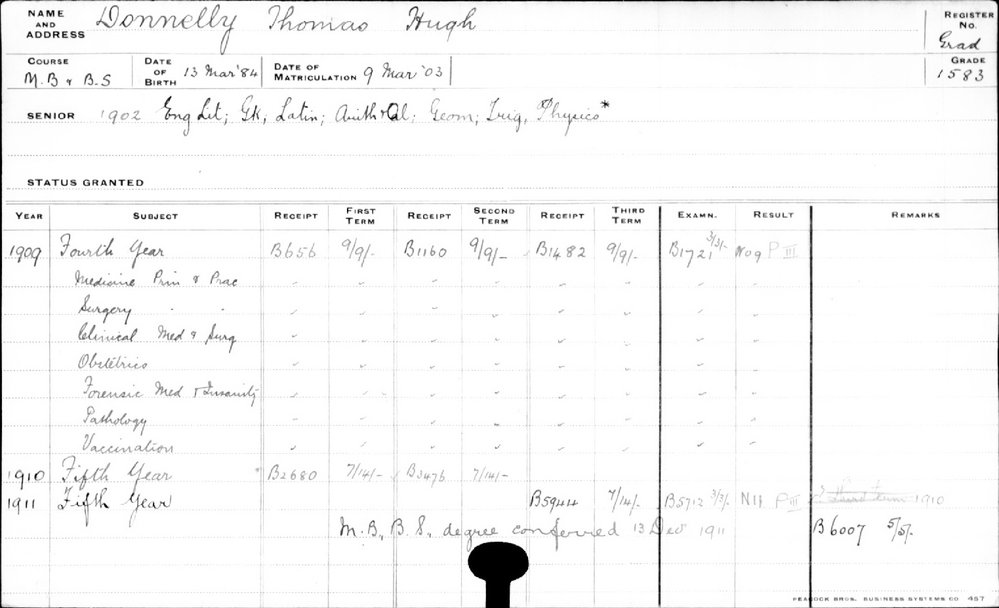 NAME AND ADDRESS Donnelly Thomas Hugh REGISTER No. Grad
COURSE M.B & B.S DATE OF BIRTH 13 Mar '84 DATE OF MATRICULATION 9 Mar '03 GRADE 1583
SENIOR 1902 Eng Lit; Gk, Latin; Arith & Al; Geom; Trig, Physics*
STATUS GRANTED
YEAR SUBJECT RECEIPT FIRST TERM RECEIPT SECOND TERM RECEIPT THIRD TERM EXAMN. RESULT REMARKS
1909 Fourth Year B656 9/9/- B1160 9/9/- B1482 9/9/- B1721 3/3/- N09 P III
Medicine Prin & Prac
Surgery " "
Clinical Med & Surg
Obstetrics
Forensic Med & Insanity
Pathology
Vaccination
1910 Fifth Year B2680 7/14/- B3476 7/14/-
1911 Fifth Year B5944 7/14/- B5712 3/3/- N11 P III third term 1910
M.B., B.S., degree conferred 13 Dec 1911 B6007 5/5/-
PEACOCK BROS. BUSINESS SYSTEMS CO 457